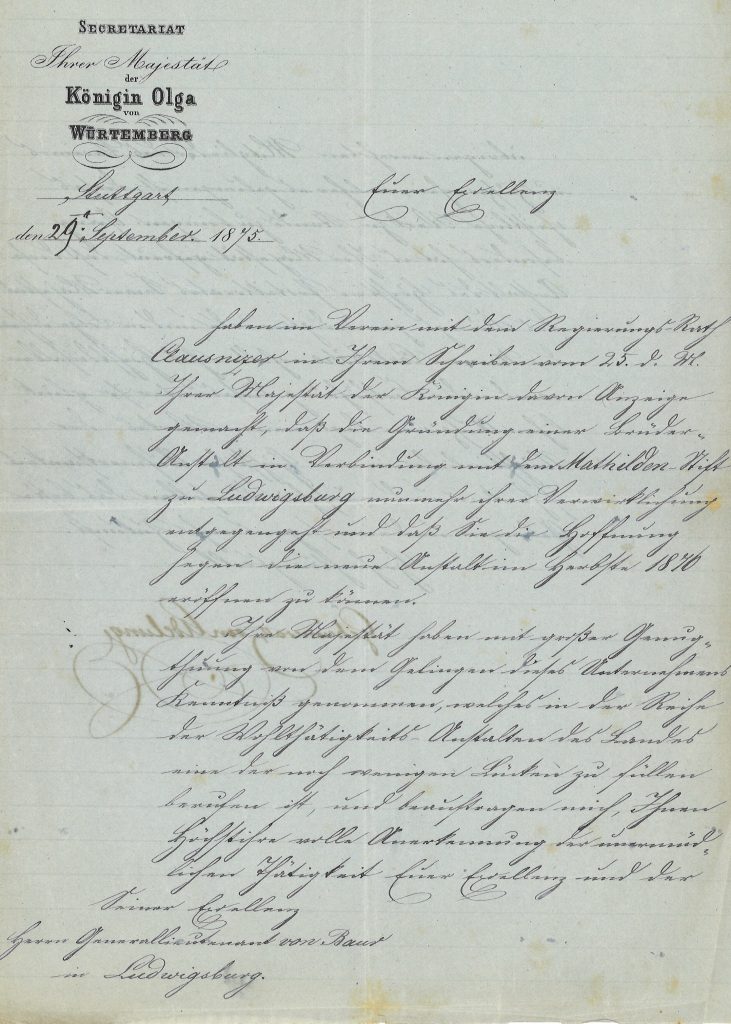 SECRETARIAT
Ihrer Majestät
der
Königin Olga
von
WÜRTEMBERG
Stuttgart
den 29. September 1875.
Euer Excellenz
haben im Verein mit dem Regierungs-Rath
Clausnizer in Ihrem Schreiben vom 25. d. M.
Ihrer Majestät der Königin davon Anzeige
gemacht, daß die Gründung einer Brüder-
Anstalt in Verbindung mit dem Mathilden-Stift
zu Ludwigsburg nunmehr ihrer Verwirklichung
entgegengeht und daß Sie die Hoffnung
hegen die neue Anstalt im Herbste 1876
eröffnen zu können.
Ihre Majestät haben mit großer Genug-
thuung von dem Gelingen dieses Unternehmens
Kenntniß genommen, welches in der Reihe
der Wohlthätigkeits-Anstalten des Landes
eine der noch wenigen Lücken zu füllen
berufen ist, und beauftragen mich, Ihnen
Höchstihre volle Anerkennung der unermüd-
lichen Thätigkeit Euer Excellenz und der
Seiner Excellenz
Herrn Generallieutenant von Baur
in Ludwigsburg.